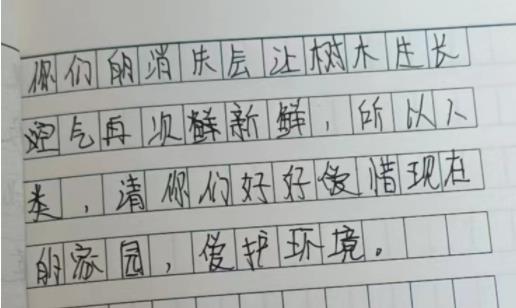 你们的消失会让树木生长
空气再次鲜新鲜，所以人
类，请你们好好爱惜现在
的家园，爱护环境。